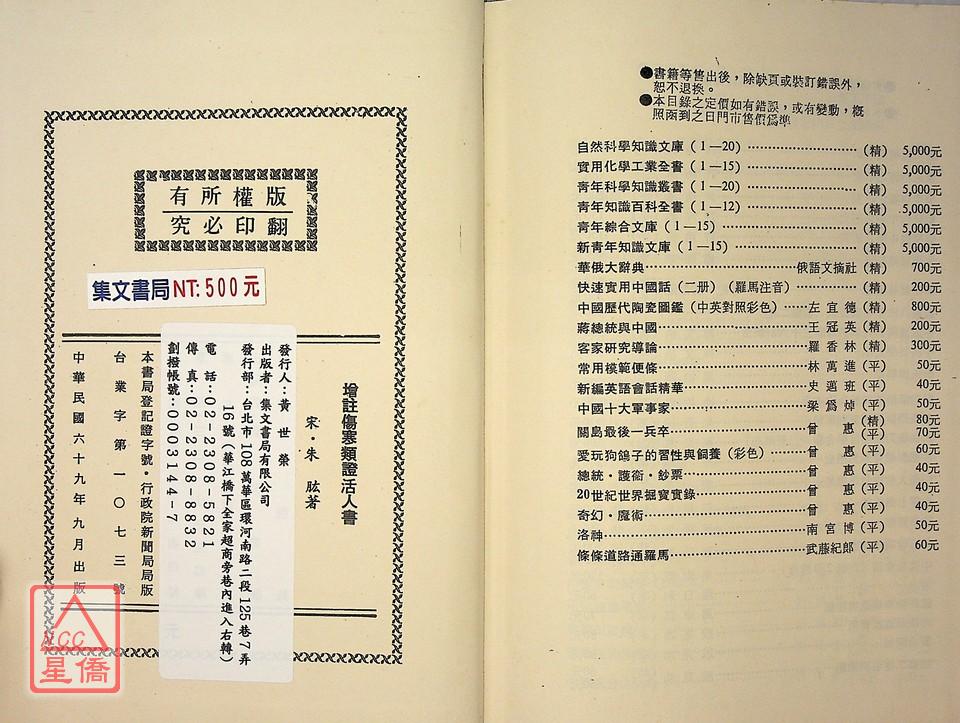 版權所有
翻印必究
集文書局NT:500元
增註傷寒類證活人書
宋・朱 肱著
發行人：黃世榮
出版者：集文書局有限公司
發行部：台北市108萬華區環河南路二段125巷7弄
16號（華江橋下全家超商旁巷內進入右轉）
電 話：02-2308-5821
傳 真：02-2308-8832
劃撥帳號：0003144-7
本書局登記證字號・行政院新聞局局版
台業字第一〇七三號
中華民國六十九年九月出版
NCC
星僑
●書籍等售出後，除缺頁或裝訂錯誤外，
恕不退換。
●本目錄之定價如有錯誤，或有變動，概
照函到之日門市售價爲準
自然科學知識文庫（1—20）⋯⋯（精） 5,000元
實用化學工業全書（1—15）⋯⋯（精） 5,000元
青年科學知識叢書（1—20）⋯⋯（精） 5,000元
青年知識百科全書（1—12）⋯⋯（精） 5,000元
青年綜合文庫（1—15）⋯⋯（精） 5,000元
新青年知識文庫（1—15）⋯⋯（精） 5,000元
華俄大辭典⋯⋯俄語文摘社（精） 700元
快速實用中國話（二册）（羅馬注音）⋯⋯（精） 200元
中國歷代陶瓷圖鑑（中英對照彩色）⋯⋯左宜德（精） 800元
蔣總統與中國⋯⋯王冠英（精） 200元
客家研究導論⋯⋯羅香林（精） 300元
常用模範便條⋯⋯林萬進（平） 50元
新編英語會話精華⋯⋯史邁班（平） 40元
中國十大軍事家⋯⋯梁爲焯（平） 50元
關島最後一兵卒⋯⋯曾 惠（精） 80元
（平） 70元
愛玩狗鴿子的習性與飼養（彩色）⋯⋯曾 惠（平） 60元
總統・護衛・鈔票⋯⋯曾 惠（平） 40元
20世紀世界掘寶實錄⋯⋯曾 惠（平） 40元
奇幻・魔術⋯⋯曾 惠（平） 40元
洛神⋯⋯南宮博（平） 50元
條條道路通羅馬⋯⋯武藤紀郎（平） 60元